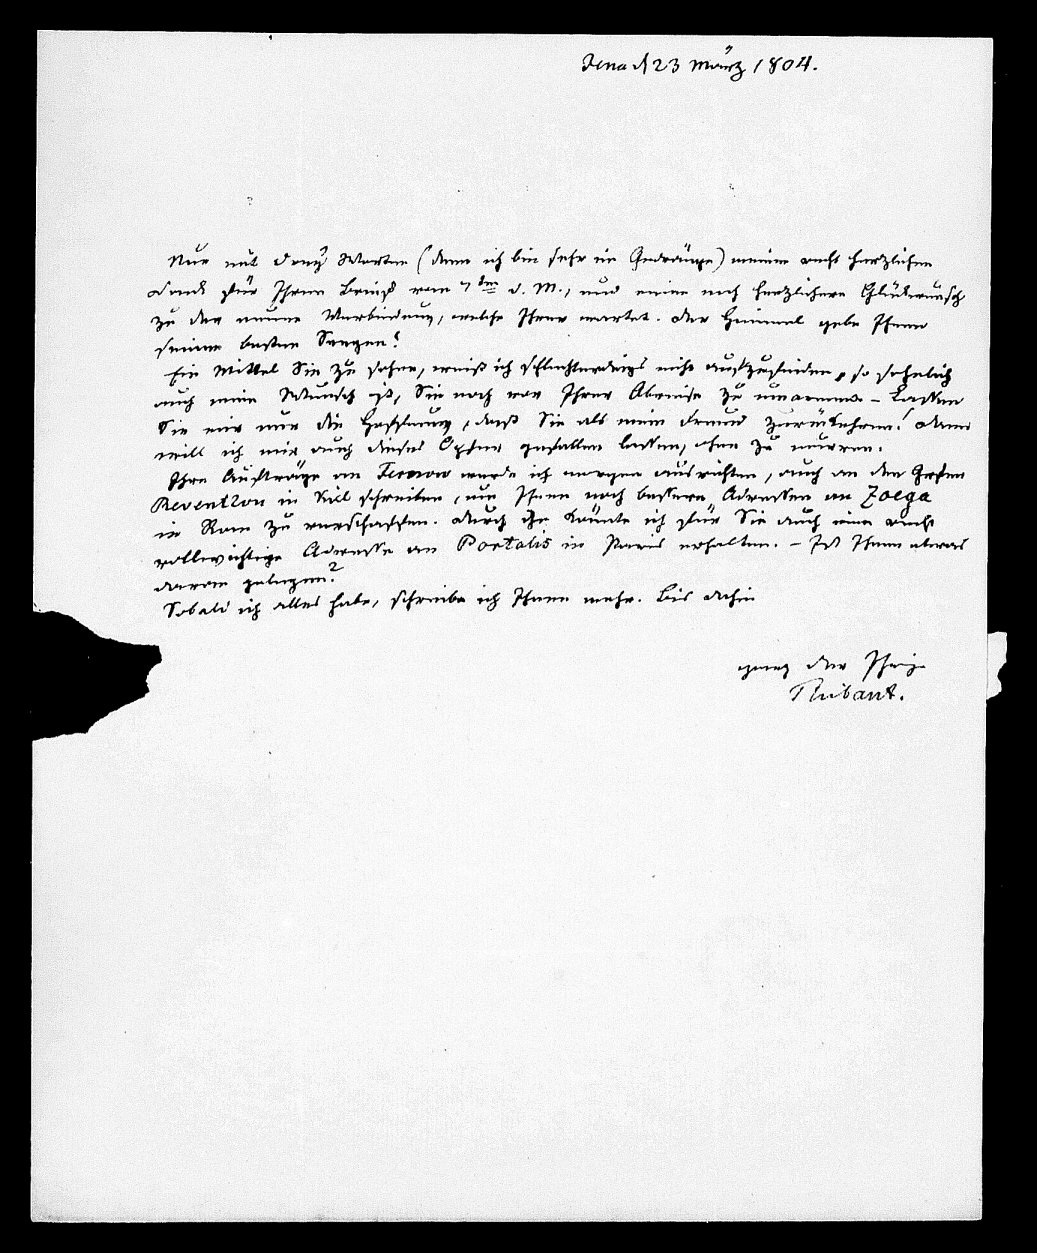 Jena d 23 März 1804.
Nur mit drey Worten (denn ich bin sehr im Gedränge) meinen recht herzlichen
Dank für Ihren Brief vom 7ten d. M., und einen noch herzlichern Glükwunsch
zu der neuen Verbindung, welche Ihrer wartet. Der Himmel gebe Ihnen
seinen besten Seegen!
Ein Mittel Sie zu sehen, weiß ich schlechterdings nicht aufzufinden, so sehnlich
auch mein Wunsch ist, Sie noch vor Ihrer Abreise zu umarmen – Lassen
Sie mir nur die Hoffnung, daß Sie als mein Freund zurükkehren! Dann
will ich mir auch dieses Opfer gefallen lassen, ohne zu murren.
Ihre Aufträge an Fernow werde ich morgen ausrichten, auch an den Grafen
Reventlou in Kiel schreiben, um Ihnen noch bessere Adressen an Zoega
in Rom zu verschaffen. Durch ihn könnte ich für Sie auch eine recht
vollwichtige Adresse an Portalis in Paris erhalten. – Ist Ihnen etwas
daran gelegen?
Sobald ich alles habe, schreibe ich Ihnen mehr. Bis dahin
ganz der Ihrige
Thibaut.